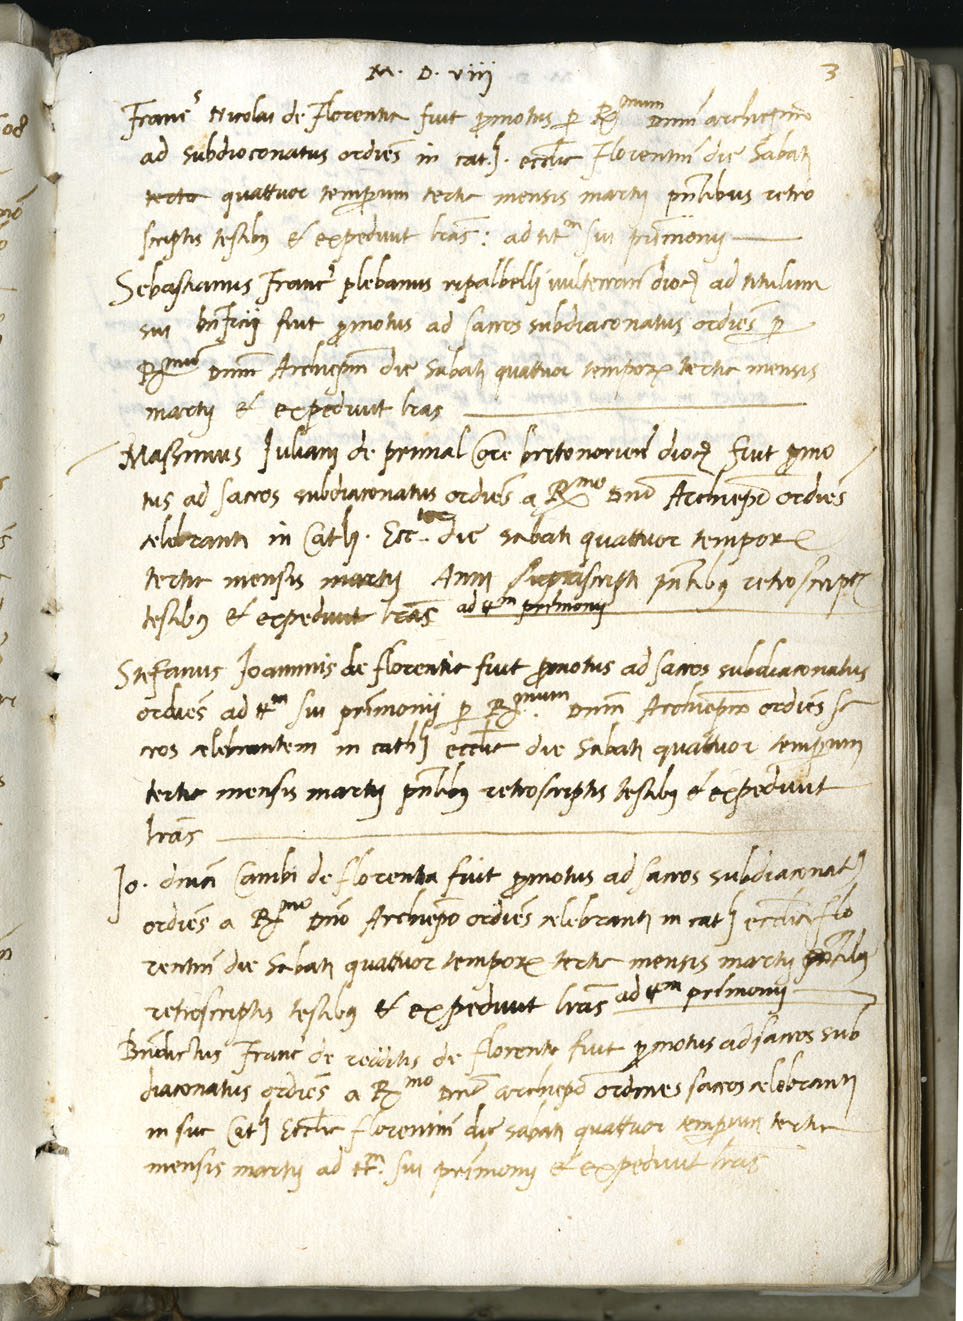 M. D. viij 3
Franc.s Nicolai de Florentia fuit promotus per R.mum Dnum archiepum
ad subdiaconatus ordinẽs in cath. ecclia Florentinã die Sabati
tertia quattuor temporum tertia mensis martij pñtibus retro
scriptis testibus et expedivit lras: ad tit.m sui primonij
Sebastianus Franc.i plebanus ripalbelli vulterran dioc. ad titulum
sui bnficij fuit promotus ad sacros subdiaconatus ordinẽs per
R.mum Dnum Archiepm die Sabati quattuor temporum tertia mensis
martij et expedivit lras
Massimus Juliani de premal core britonorien dioc. fuit promo
tus ad sacros subdiaconatus ordinẽs a R.mo Dno Archiepo ordinẽs
celebranti in Cath. Eccl. die sabati quattuor temporum
tertia mensis martij Anni suprascripti pñtibus retroscriptis
testibus et expedivit lras ad tt.m primonij
Stefanus Joannnis de florentia fuit promotus ad sacros subdiaconatus
ordinẽs ad tt.m sui primonij per R.mum Dnum Archiepm ordinẽs sa
cros celebrantem in cath. ecclia die Sabati quattuor temporum
tertia mensis martij pñtibus retroscriptis testibus et expedivit
lras
Jo. Cambi de florentia fuit promotus ad sacros subdiaconatus
ordinẽs a R.mo Dño Archiepo ordinẽs celebranti in cath. ecclia flo
rentinã die Sabati quattuor temporum tertia mensis martij pñtibus
retroscriptis testibus et expedivit lras ad tt.m primonij
Bndictus Franc.i de redditis de florentia fuit promotus ad sacros sub
diaconatus ordinẽs a R.mo Dno archiepo ordines sacros celebranti
in sua Cath. Ecclia florentinã die sabati quattuor temporum tertia
mensis martij ad tt.m sui primonij et expedivit lras